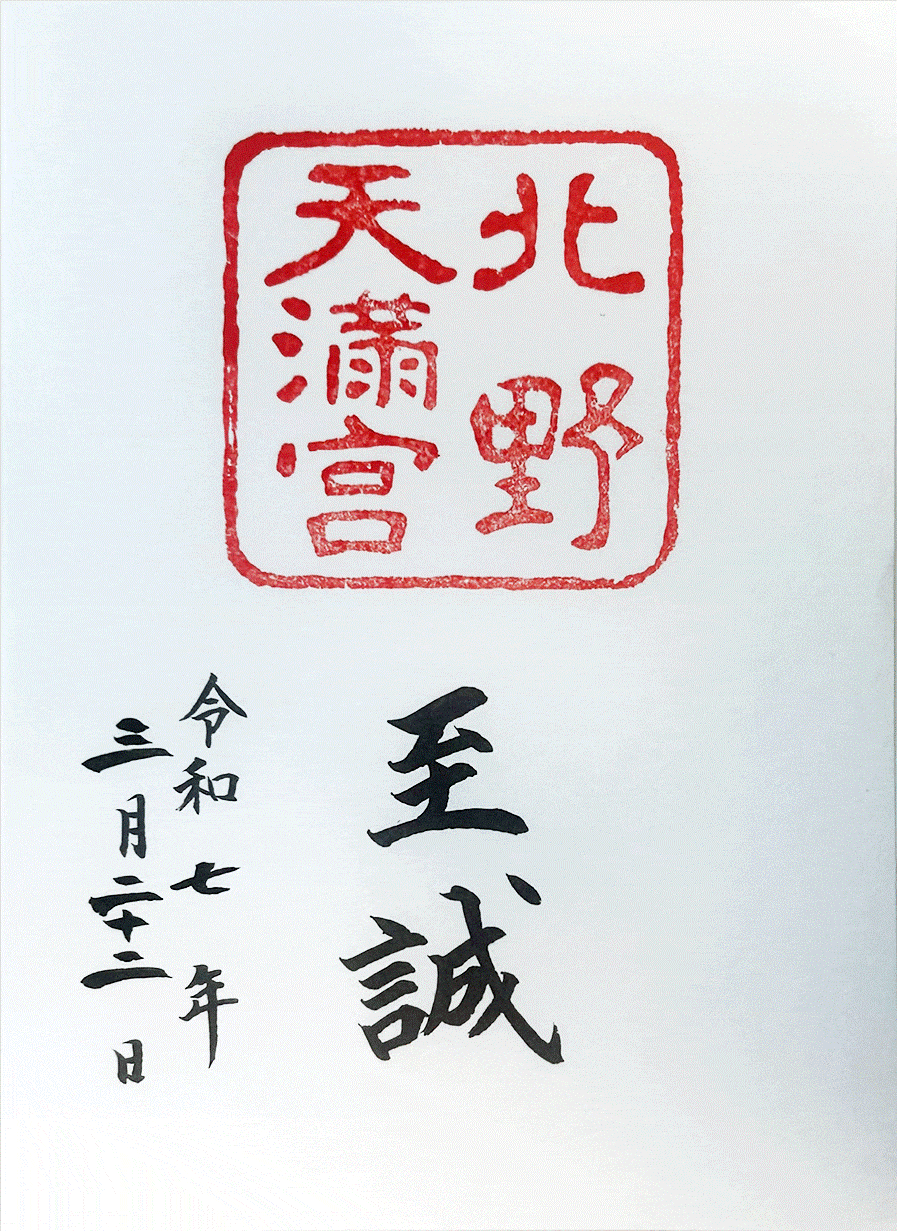 北野
天満宮
至誠
令和七年
三月二十二日